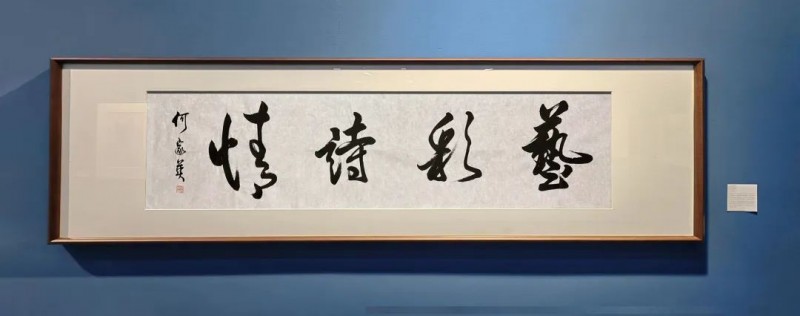 藝彩詩情
何家英